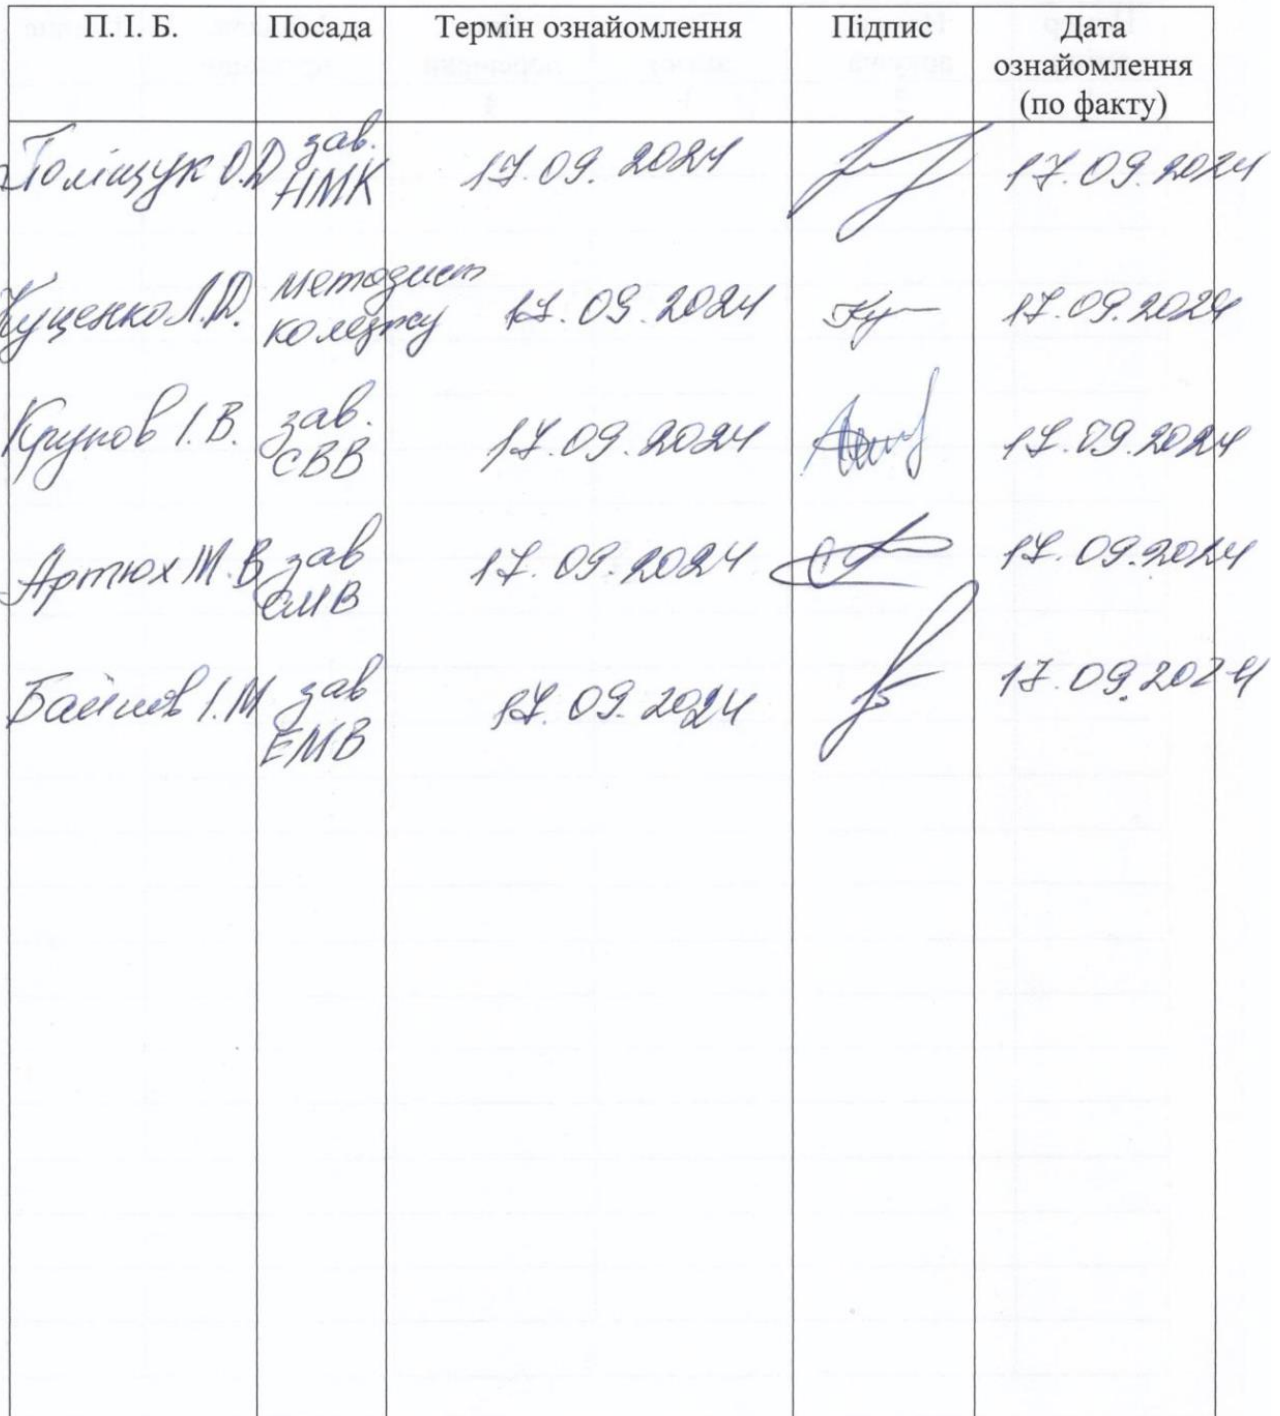 П. І. Б. Посада Термін ознайомлення Підпис Дата ознайомлення (по факту)
Поліщук О.Д зав. НМК 17.09.2024 17.09.2024
Куценко Л.Д. методист коледжу 17.09.2024 17.09.2024
Крупов І.В. зав. СВВ 17.09.2024 17.09.2024
Артюх М.В зав СМВ 17.09.2024 17.09.2024
І.М зав ЕМВ 17.09.2024 17.09.2024